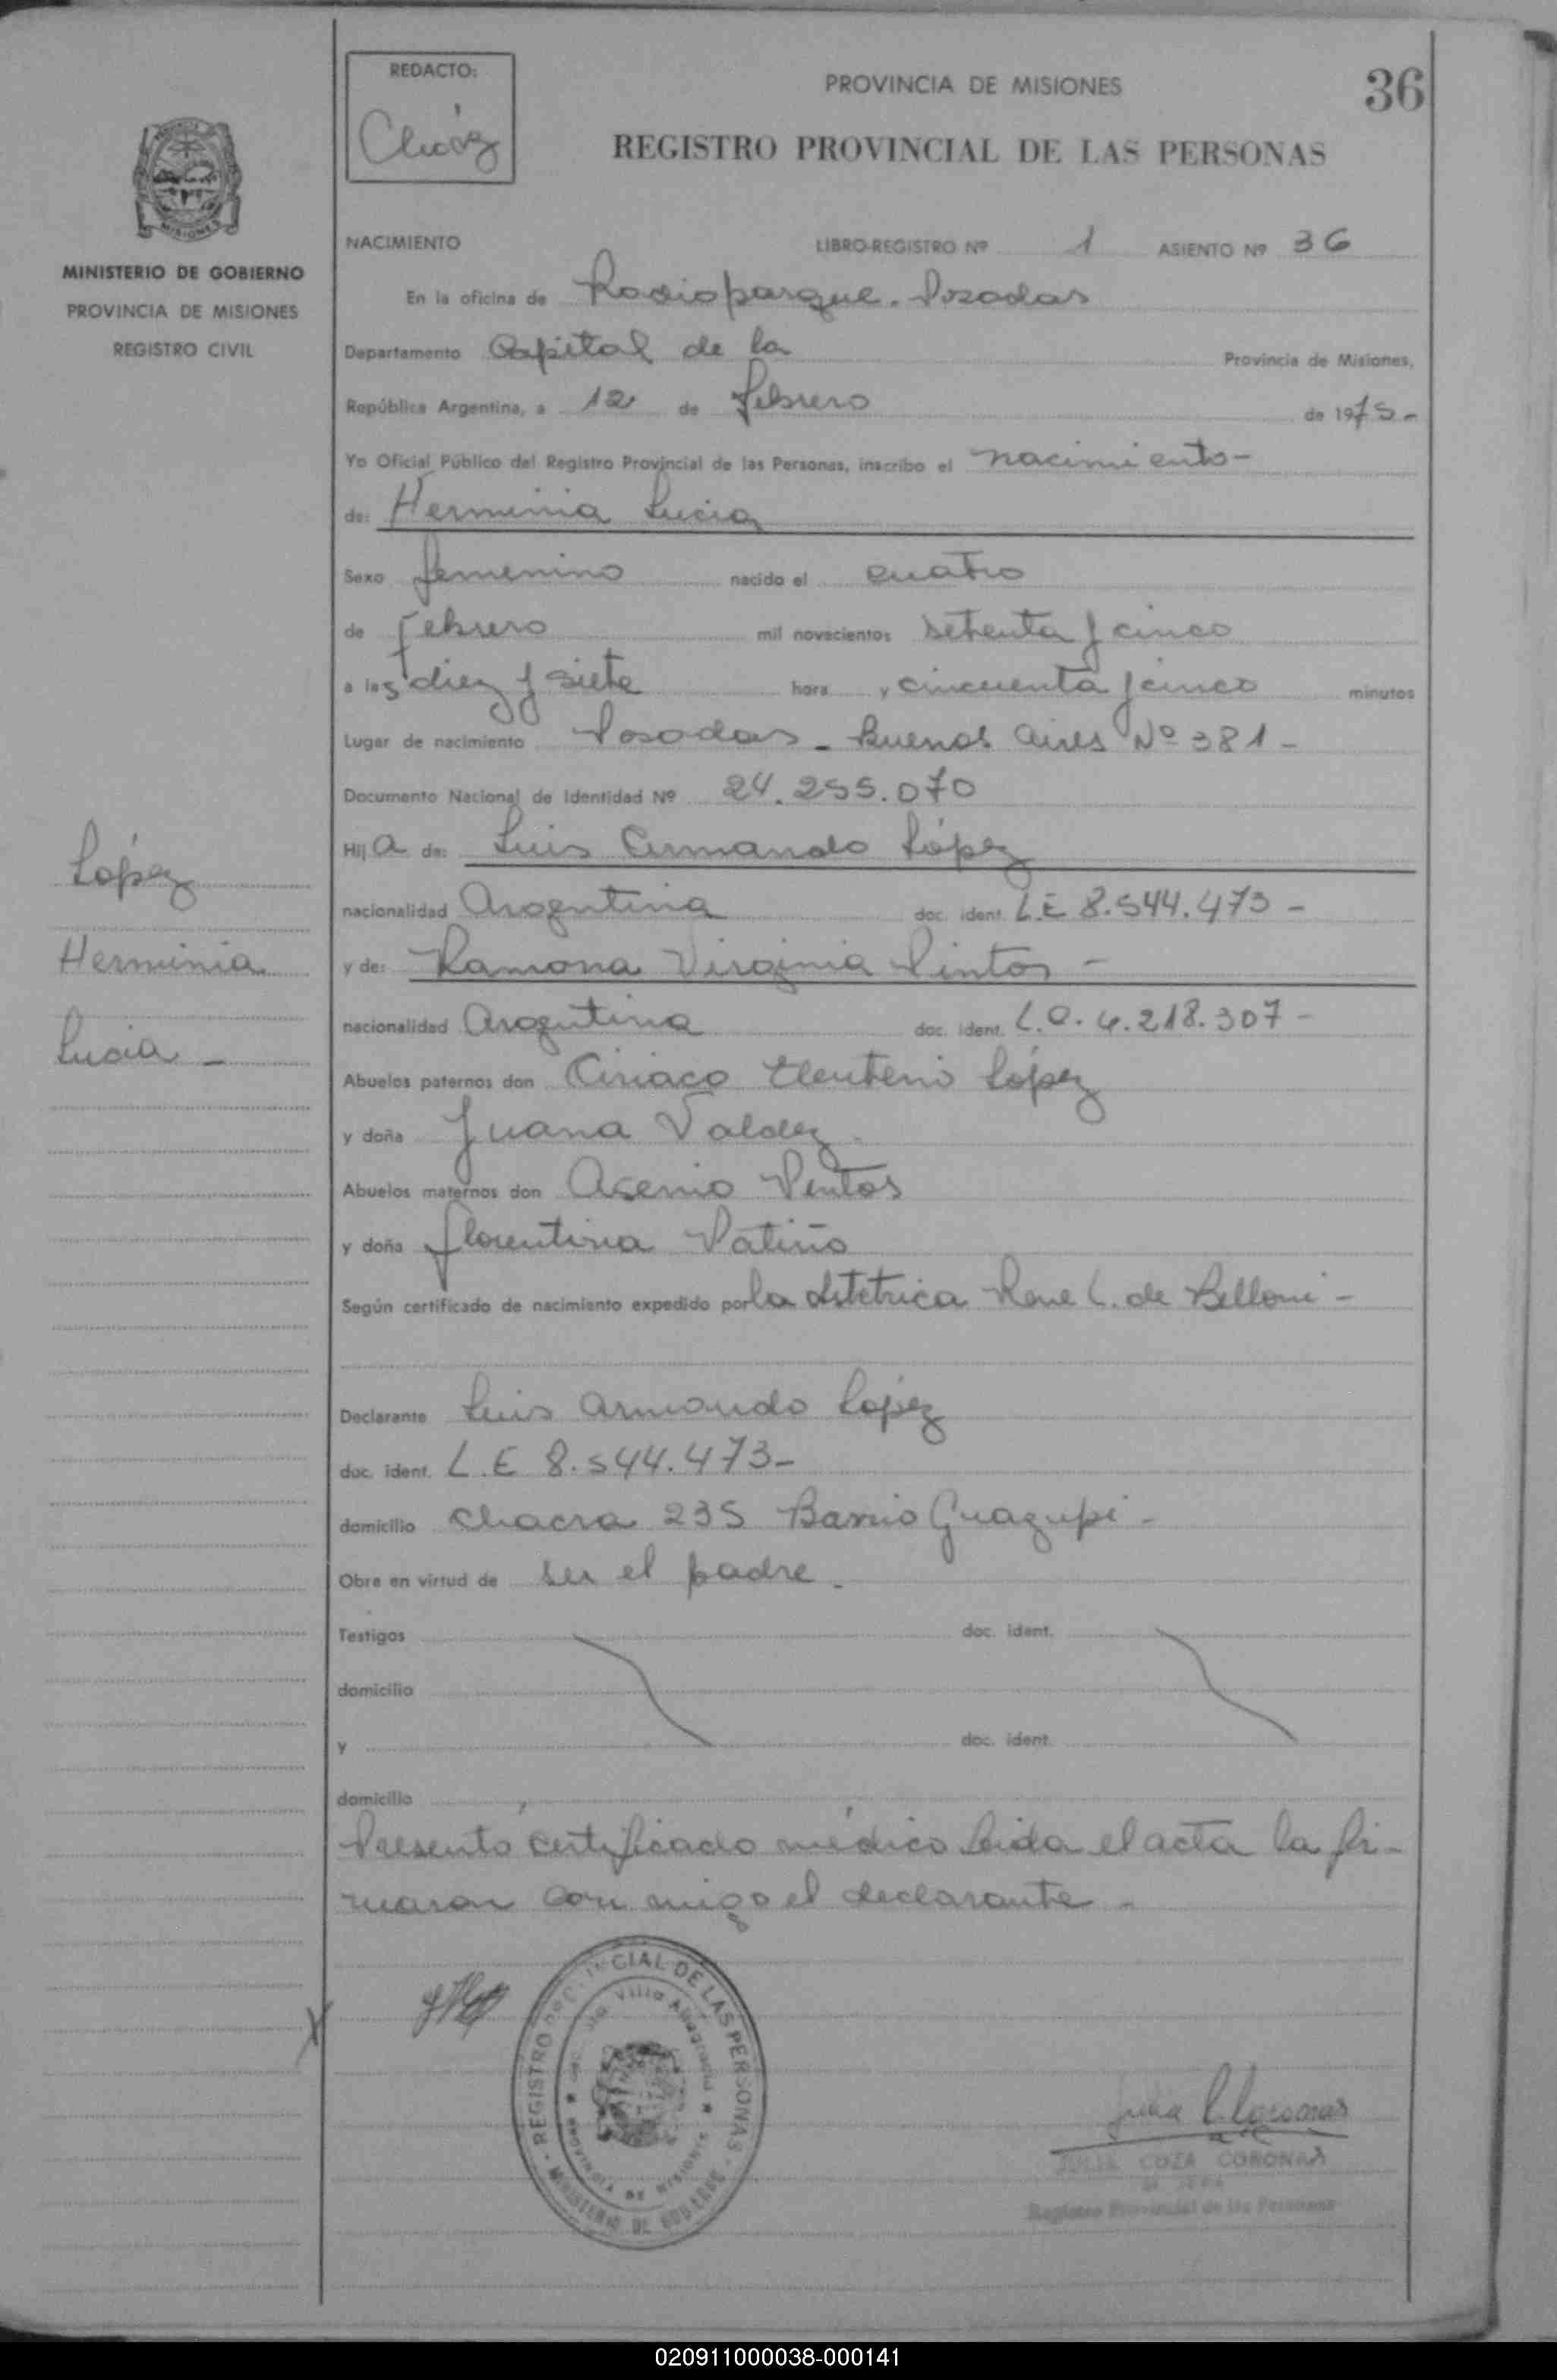 REDACTO:
Chávez
PROVINCIA DE MISIONES
36
REGISTRO PROVINCIAL DE LAS PERSONAS
MISIONES
MINISTERIO DE GOBIERNO
PROVINCIA DE MISIONES
REGISTRO CIVIL
NACIMIENTO LIBRO-REGISTRO Nº 1 ASIENTO Nº 36
En la oficina de Radioparque. Posadas
Departamento Capital de la Provincia de Misiones,
República Argentina, a 12 de febrero de 1975-
Yo Oficial Público del Registro Provincial de las Personas, inscribo el nacimiento-
de: Herminia Lucia
Sexo femenino nacido el cuatro
de febrero mil novecientos setenta y cinco
a las diez y siete hora y cincuenta y cinco minutos
Lugar de nacimiento Posadas - Buenos Aires Nº 381-
Documento Nacional de Identidad Nº 24.255.070
Hija de: Luis Armando López
nacionalidad Argentina doc. ident. L.E 8.544.473-
y de: Ramona Virginia Pintos-
nacionalidad Argentina doc. ident. L.C. 4.218.307-
Abuelos paternos don Ciriaco Eleuterio López
y doña Juana Valdez.
Abuelos maternos don Asenio Pintos
y doña florentina Patiño
Según certificado de nacimiento expedido por la obstetrica Rene L. de Belloni-
Declarante Luis Armando López
doc. ident. L.E 8.544.473-
domicilio Chacra 235 Barrio Guazupi-
Obra en virtud de ser el padre.
Testigos doc. ident.
domicilio
y doc. ident.
domicilio
Presentó certificado médico leida el acta la fir-
maron con migo el declarante-
López
Herminia
Lucia-
REGISTRO PROVINCIAL DE LAS PERSONAS
MINISTERIO DE GOBIERNO
Villa
PROVINCIA DE MISIONES
Julia C. Coronas
JULIA COZA CORONAS
Registro Provincial de las Personas
020911000038-000141